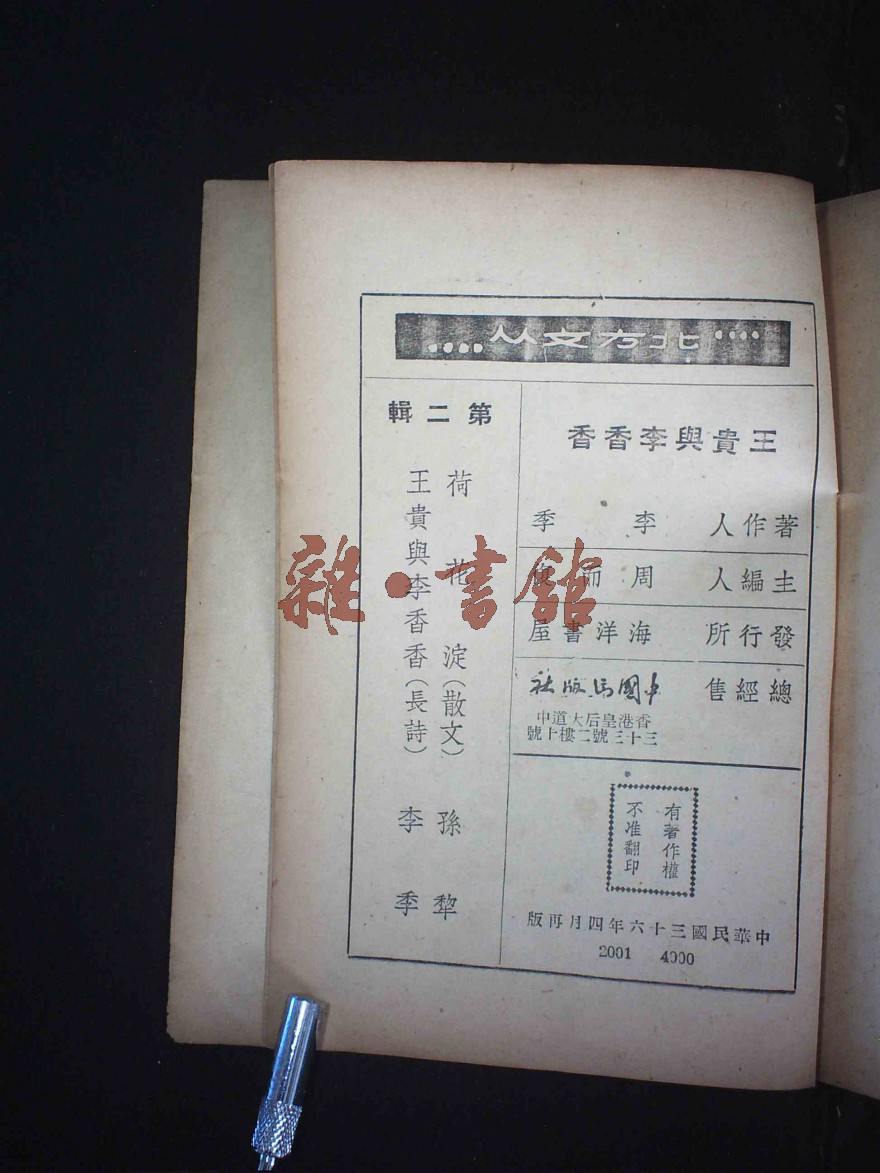 北方文丛
王貴與李香香
著作人 李季
主編人 周而復
發行所 海洋書屋
總經售 中國出版社
香港皇后大道中
三十三號二樓上號
有著作權
不准翻印
中華民國三十六年四月再版
2001 4000
第二輯
荷花淀(散文) 孫犁
王貴與李香香(長詩) 李季
雜·書館